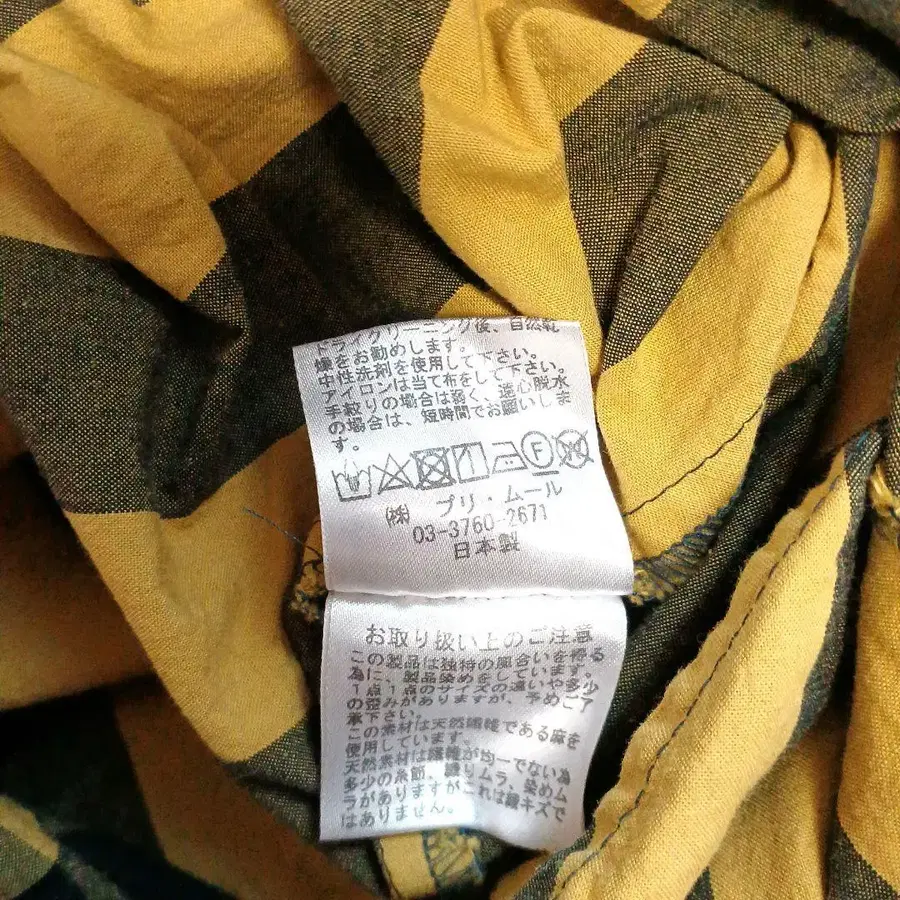 ドライクリーニング後、自然乾
燥をお勧めします。
中性洗剤を使用して下さい。
アイロンは当て布をして下さい。
手絞りの場合は弱く、遠心脱水
の場合は、短時間でお願いしま
す。
F
㈱ プリ・ムール
03-3760-2671
日本製
お取り扱い上のご注意
この製品は独特の風合いを得る
為に、製品染めをしています。
1点1点のサイズの違いや多少
の歪みがありますが、予めご了
承下さい。
この素材は天然繊維である麻を
使用しています。
天然素材は繊維が均一でない為
多少の糸節、織りムラ、染めム
ラがありますがこれは織キズで
はありません。